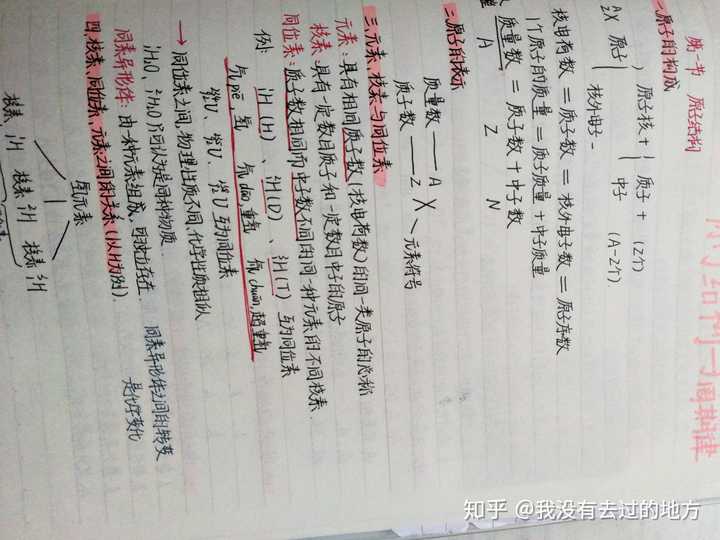 第一节 原子结构
一.原子的构成
原子核+ 质子+ (Z个)
中子 (A-Z个)
AZX 原子
核外电子-
核电荷数 = 质子数 = 核外电子数 = 原子序数
1个原子的质量 = 质子质量 + 中子质量
质量数 = 质子数 + 中子数
A Z N
二.原子的表示
质量数 — A
X 元素符号
质子数 — Z
三.元素、核素与同位素
元素:具有相同质子数(核电荷数)的同一类原子的总称
核素:具有一定数目质子和一定数目中子的原子
同位素:质子数相同而中子数不同的同一种元素的不同核素.
例: 11H(H)、21H(D)、31H(T) 互为同位素
氕pie 氢 氘dao,重氢 氚chuan,超重氢
U、U、U 互为同位素
→ 同位素之间,物理性质不同,化学性质相似
H2O、H2O 可认为是同种物质.
同素异形体:由一种元素组成,可独立存在 同素异形体之间的转变
是化学变化
四.核素、同位素、元素之间的关系(以H为例).
氢元素
核素11H 核素21H 核素31H
知乎 @我没有去过的地方